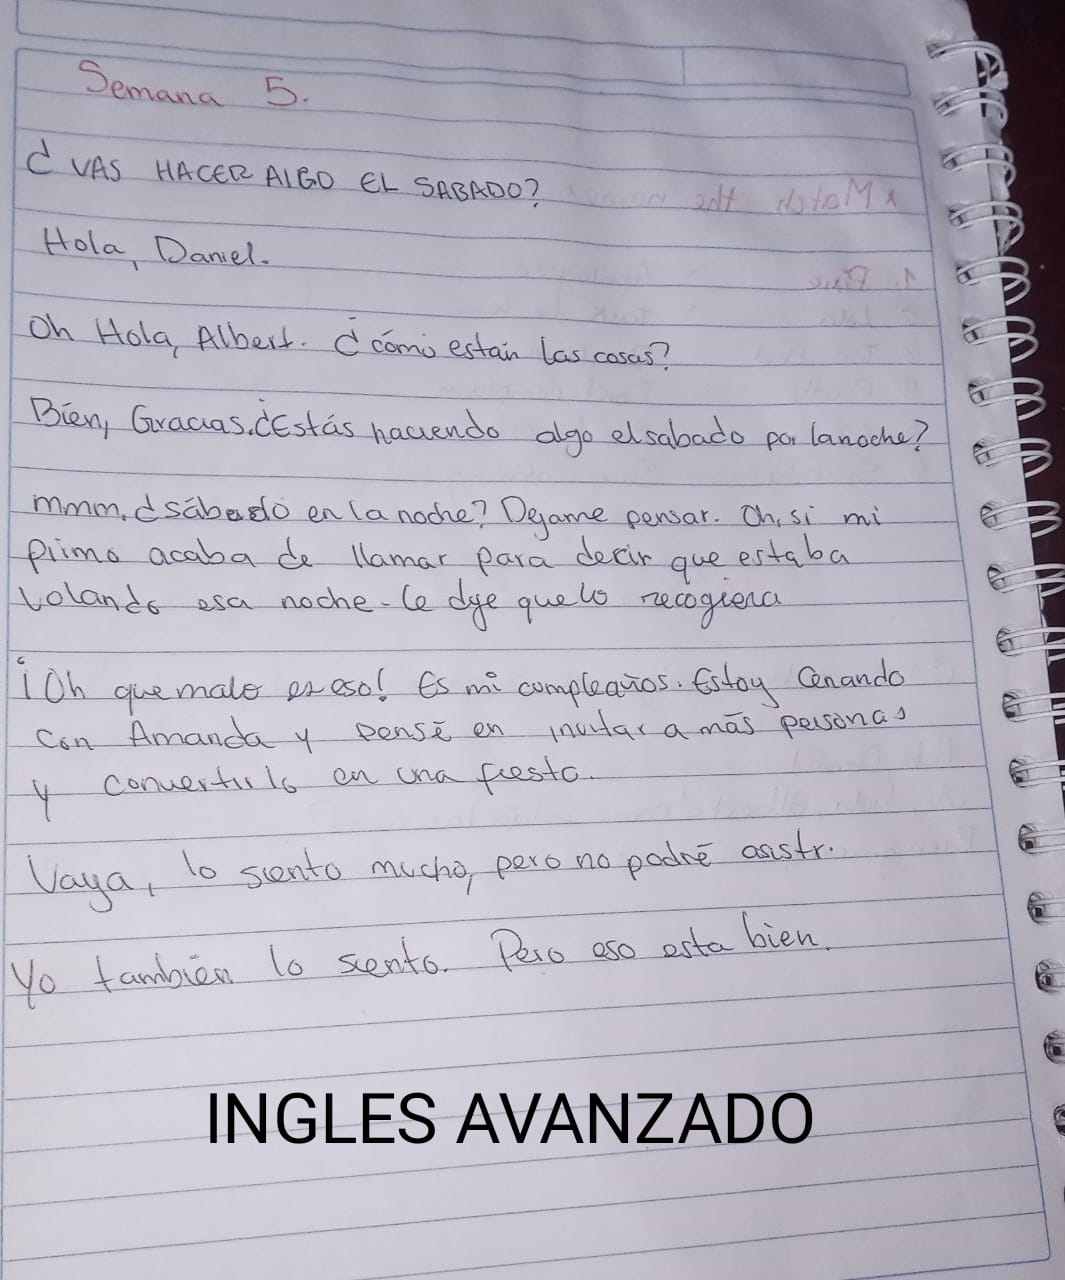 Semana 5.
¿ VAS HACER AlGO EL SABADO?
Hola, Daniel.
Oh Hola, Albert. ¿cómo están las cosas?
Bien, Gracias. ¿Estás haciendo algo el sabado por la noche?
mmm, ¿sábado en la noche? Dejame pensar. Oh, si mi
primo acaba de llamar para decir que estaba
volando esa noche. le dije que lo recogiera
¡Oh que malo es eso! Es mi cumpleaños. Estoy Cenando
con Amanda y pensé en invitar a más personas
y convertirlo en una fiesta.
Vaya, lo siento mucho, pero no podré asistr.
Yo también lo siento. Pero eso esta bien.
INGLES AVANZADO